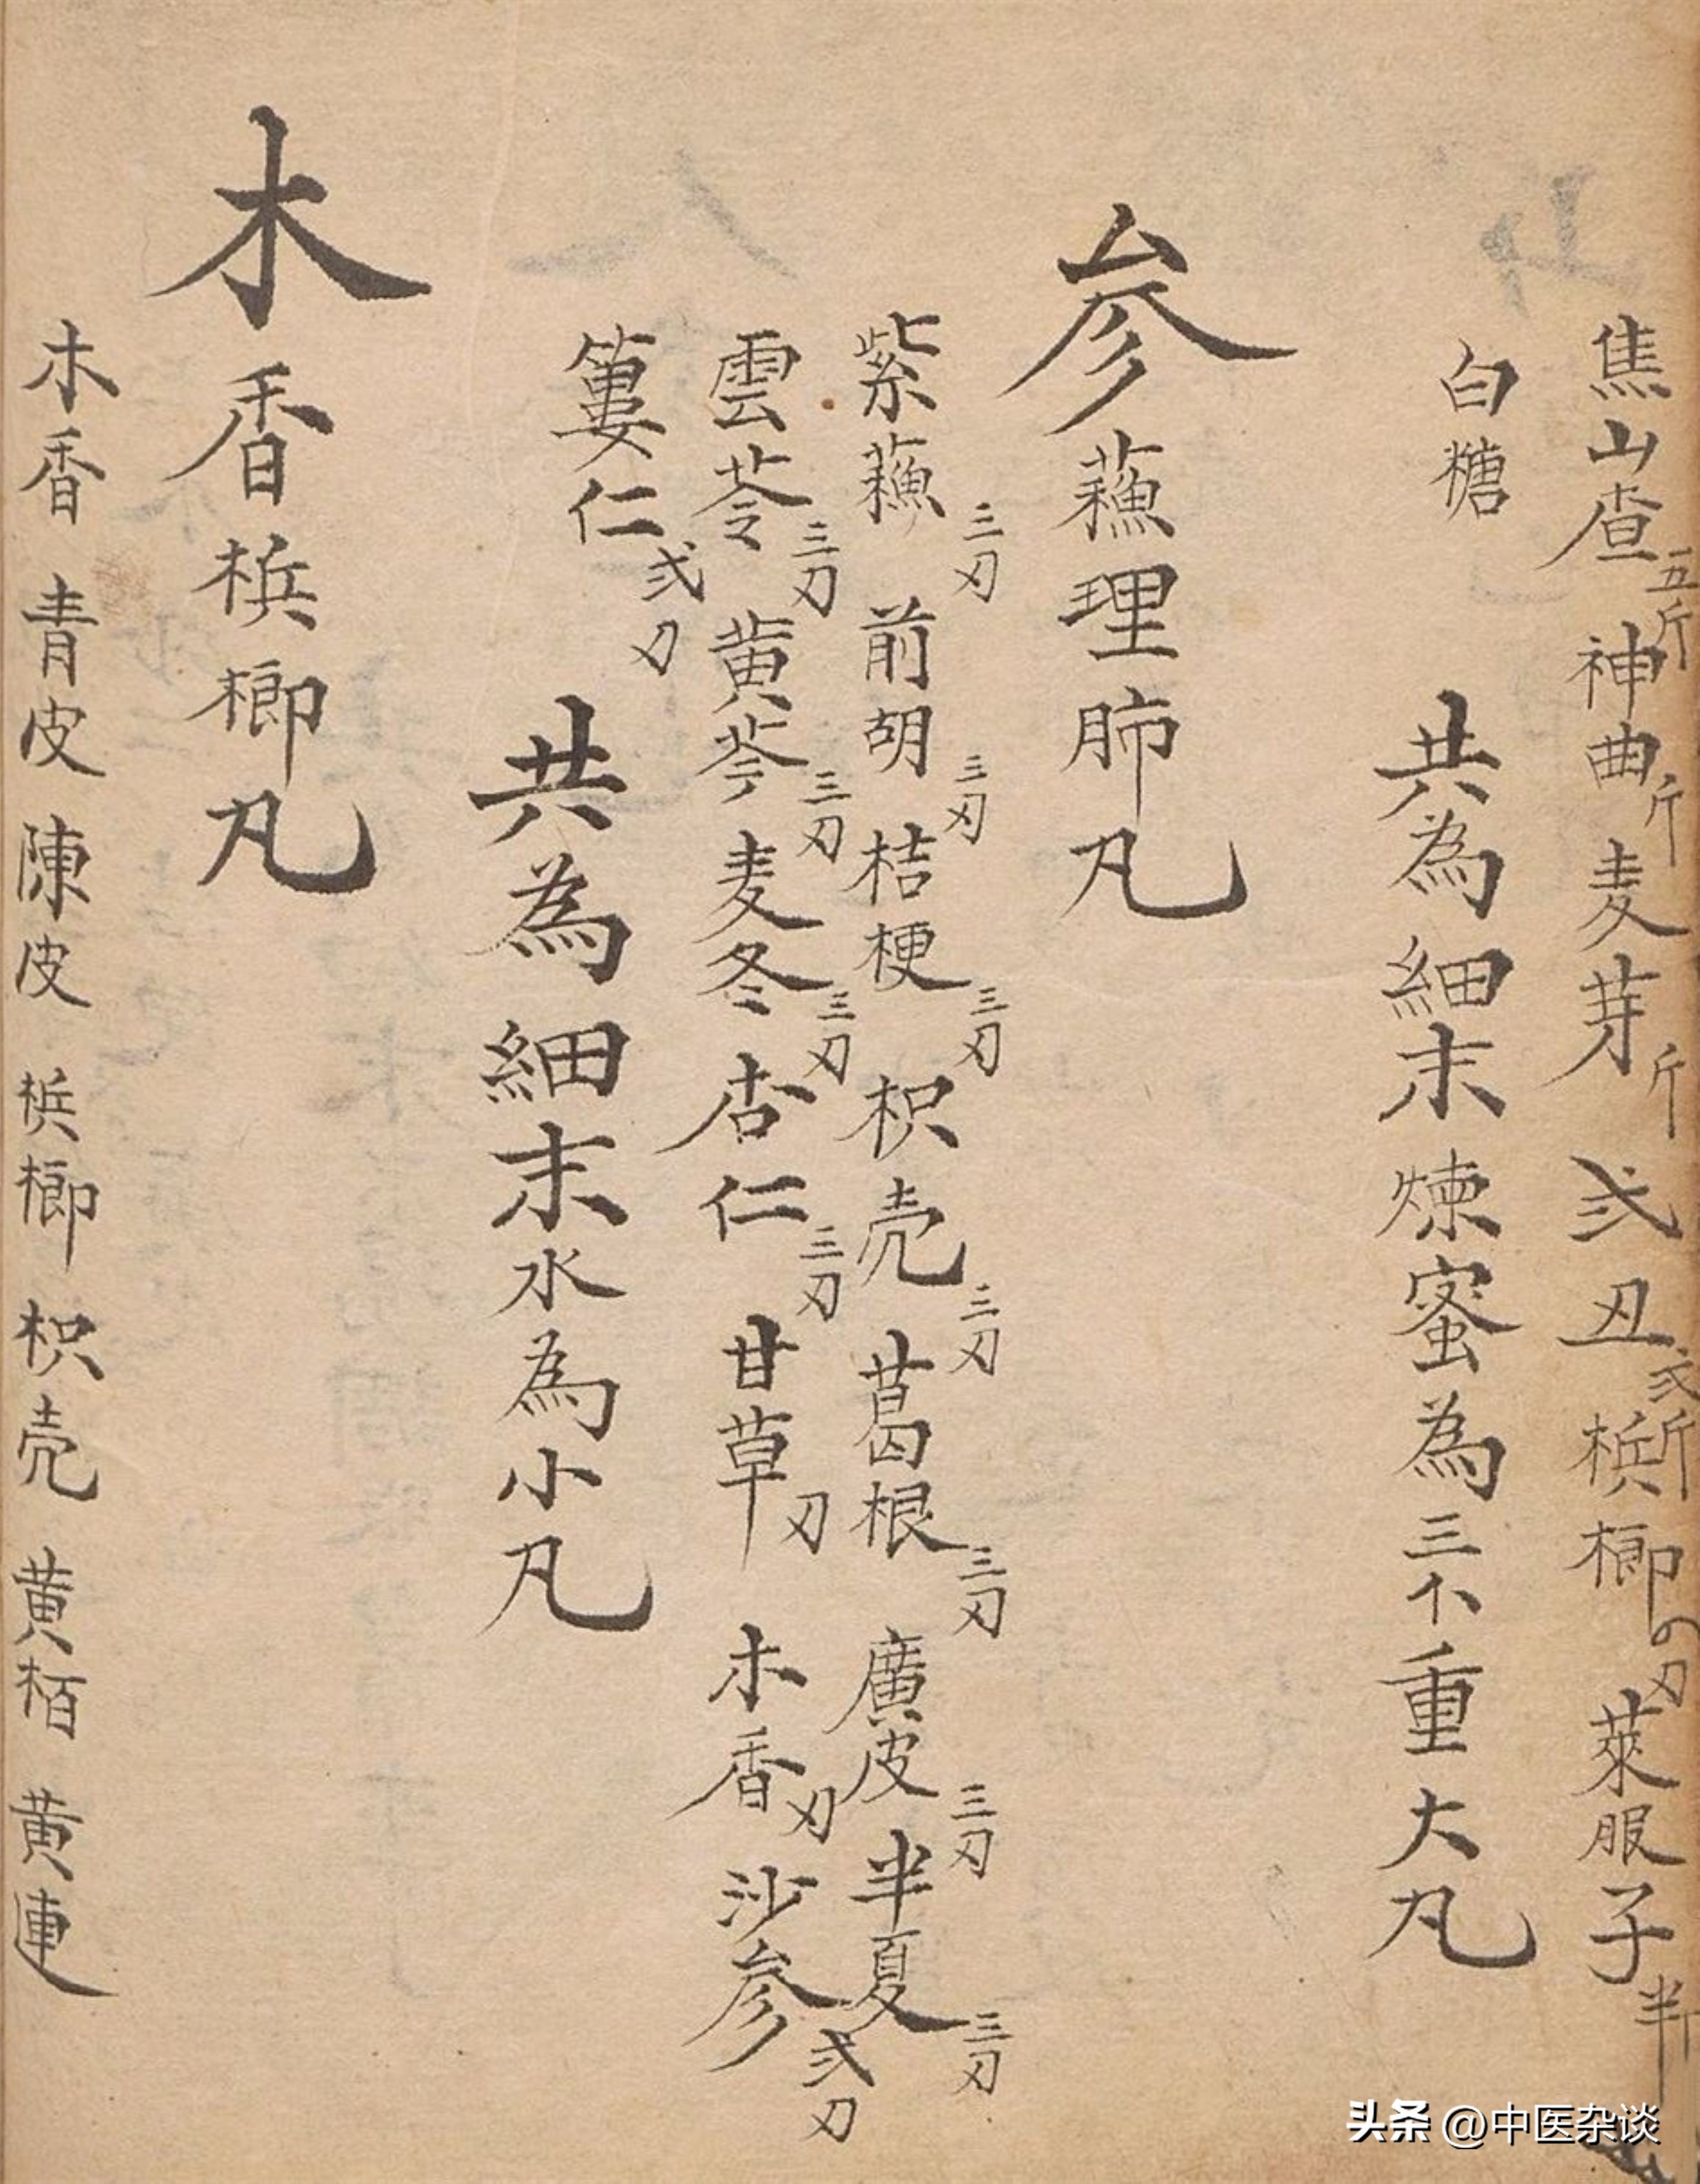 焦山查五斤 神曲斤 麦芽斤 弍丑弍斤 梹榔 刃 莱服子半斤
白糖 共為細末煉蜜為三个重大丸
参蘓理肺丸
紫蘓三刃 前胡三刃 桔梗三刃 枳壳三刃 葛根三刃 廣皮三刃 半夏三刃
雲苓三刃 黄芩三刃 麦冬三刃 杏仁三刃 甘草刃 木香刃 沙参弍刃
蔞仁弍刃 共為細末水為小丸
木香梹榔丸
木香 青皮 陳皮 梹榔 枳壳 黄栢 黄連
头条 @中医杂谈